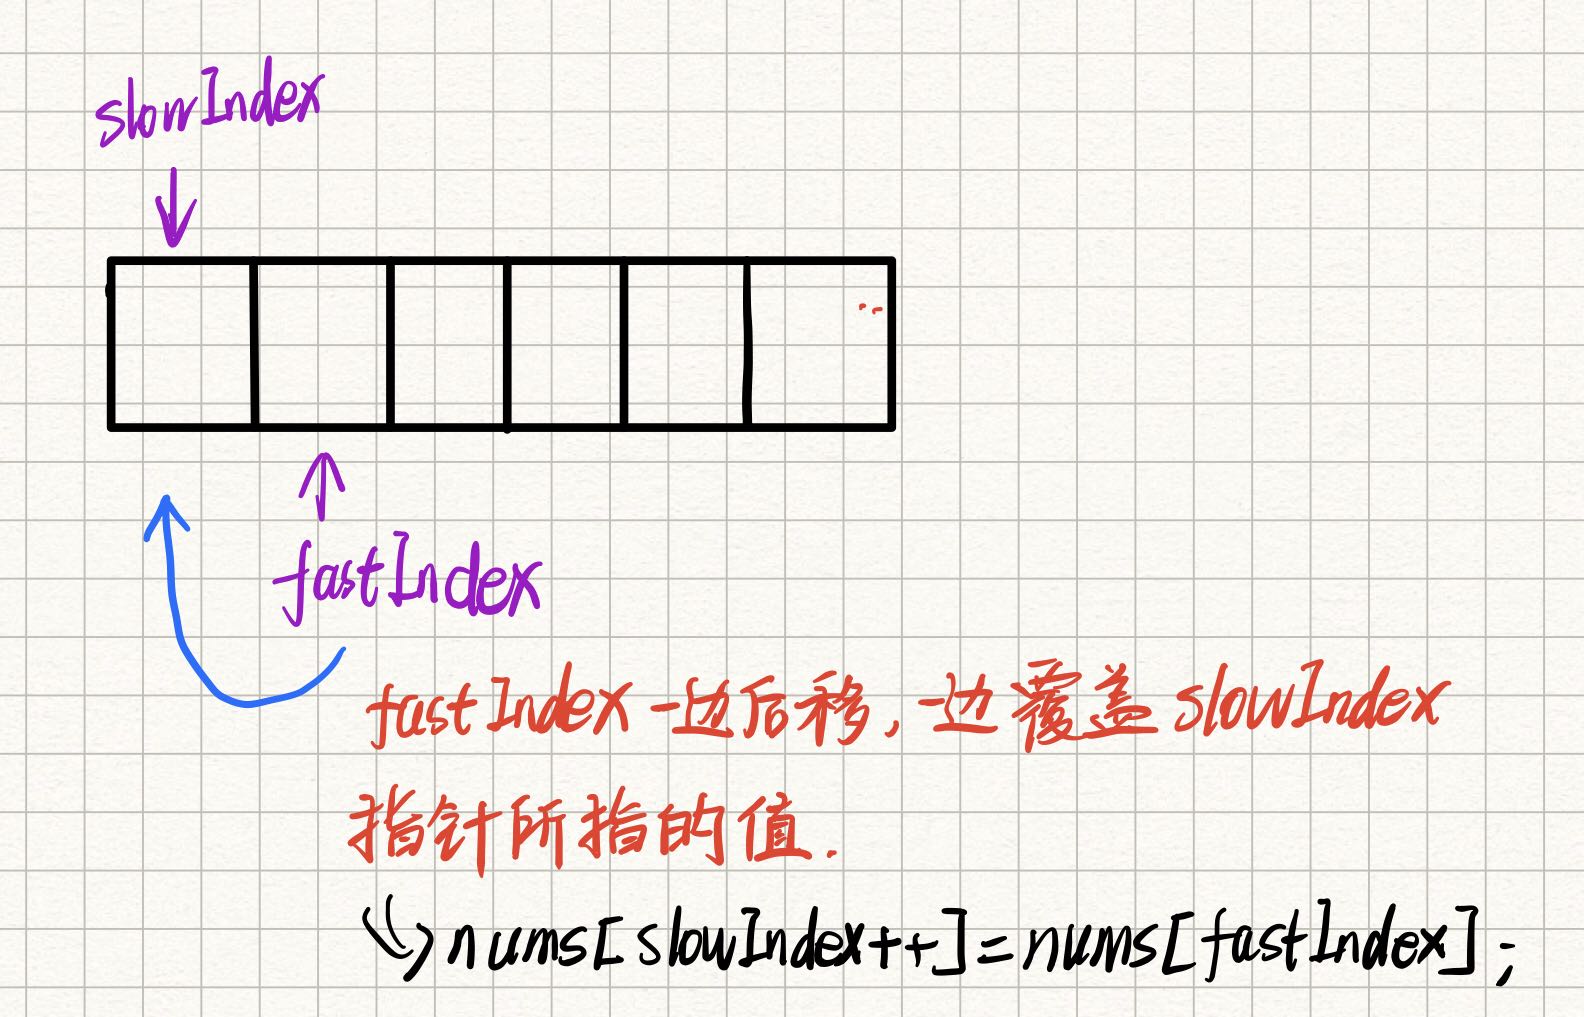 slowIndex
fastIndex
fastIndex一边后移,一边覆盖slowIndex
指针所指的值.
nums[slowIndex++]=nums[fastIndex];